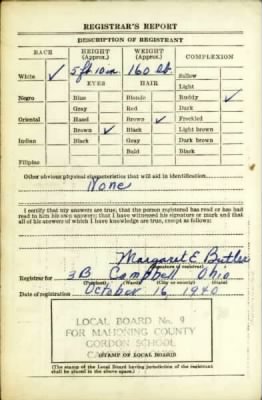 REGISTRAR'S REPORT
DESCRIPTION OF REGISTRANT
RACE HEIGHT (Approx.) WEIGHT (Approx.) COMPLEXION
White ✓ 5 ft 10 in. 160 lb. Sallow
EYES HAIR Light
Negro Blue Blonde Ruddy ✓
Gray Red Dark
Oriental Hazel Brown ✓ Freckled
Brown ✓ Black Light brown
Indian Black Gray Dark brown
Bald Black
Filipino
Other obvious physical characteristics that will aid in identification
None
I certify that my answers are true; that the person registered has read or has had
read to him his own answers; that I have witnessed his signature or mark and that
all of his answers of which I have knowledge are true, except as follows:
Margaret E. Butler
(Signature of registrar)
Registrar for 3 B Campbell Ohio
(Precinct) (Ward) (City or county) (State)
Date of registration October 16 1940
LOCAL BOARD No. 9
FOR MAHONING COUNTY
GORDON SCHOOL
(STAMP OF LOCAL BOARD)
(The stamp of the Local Board having jurisdiction of the registrant
shall be placed in the above space.)